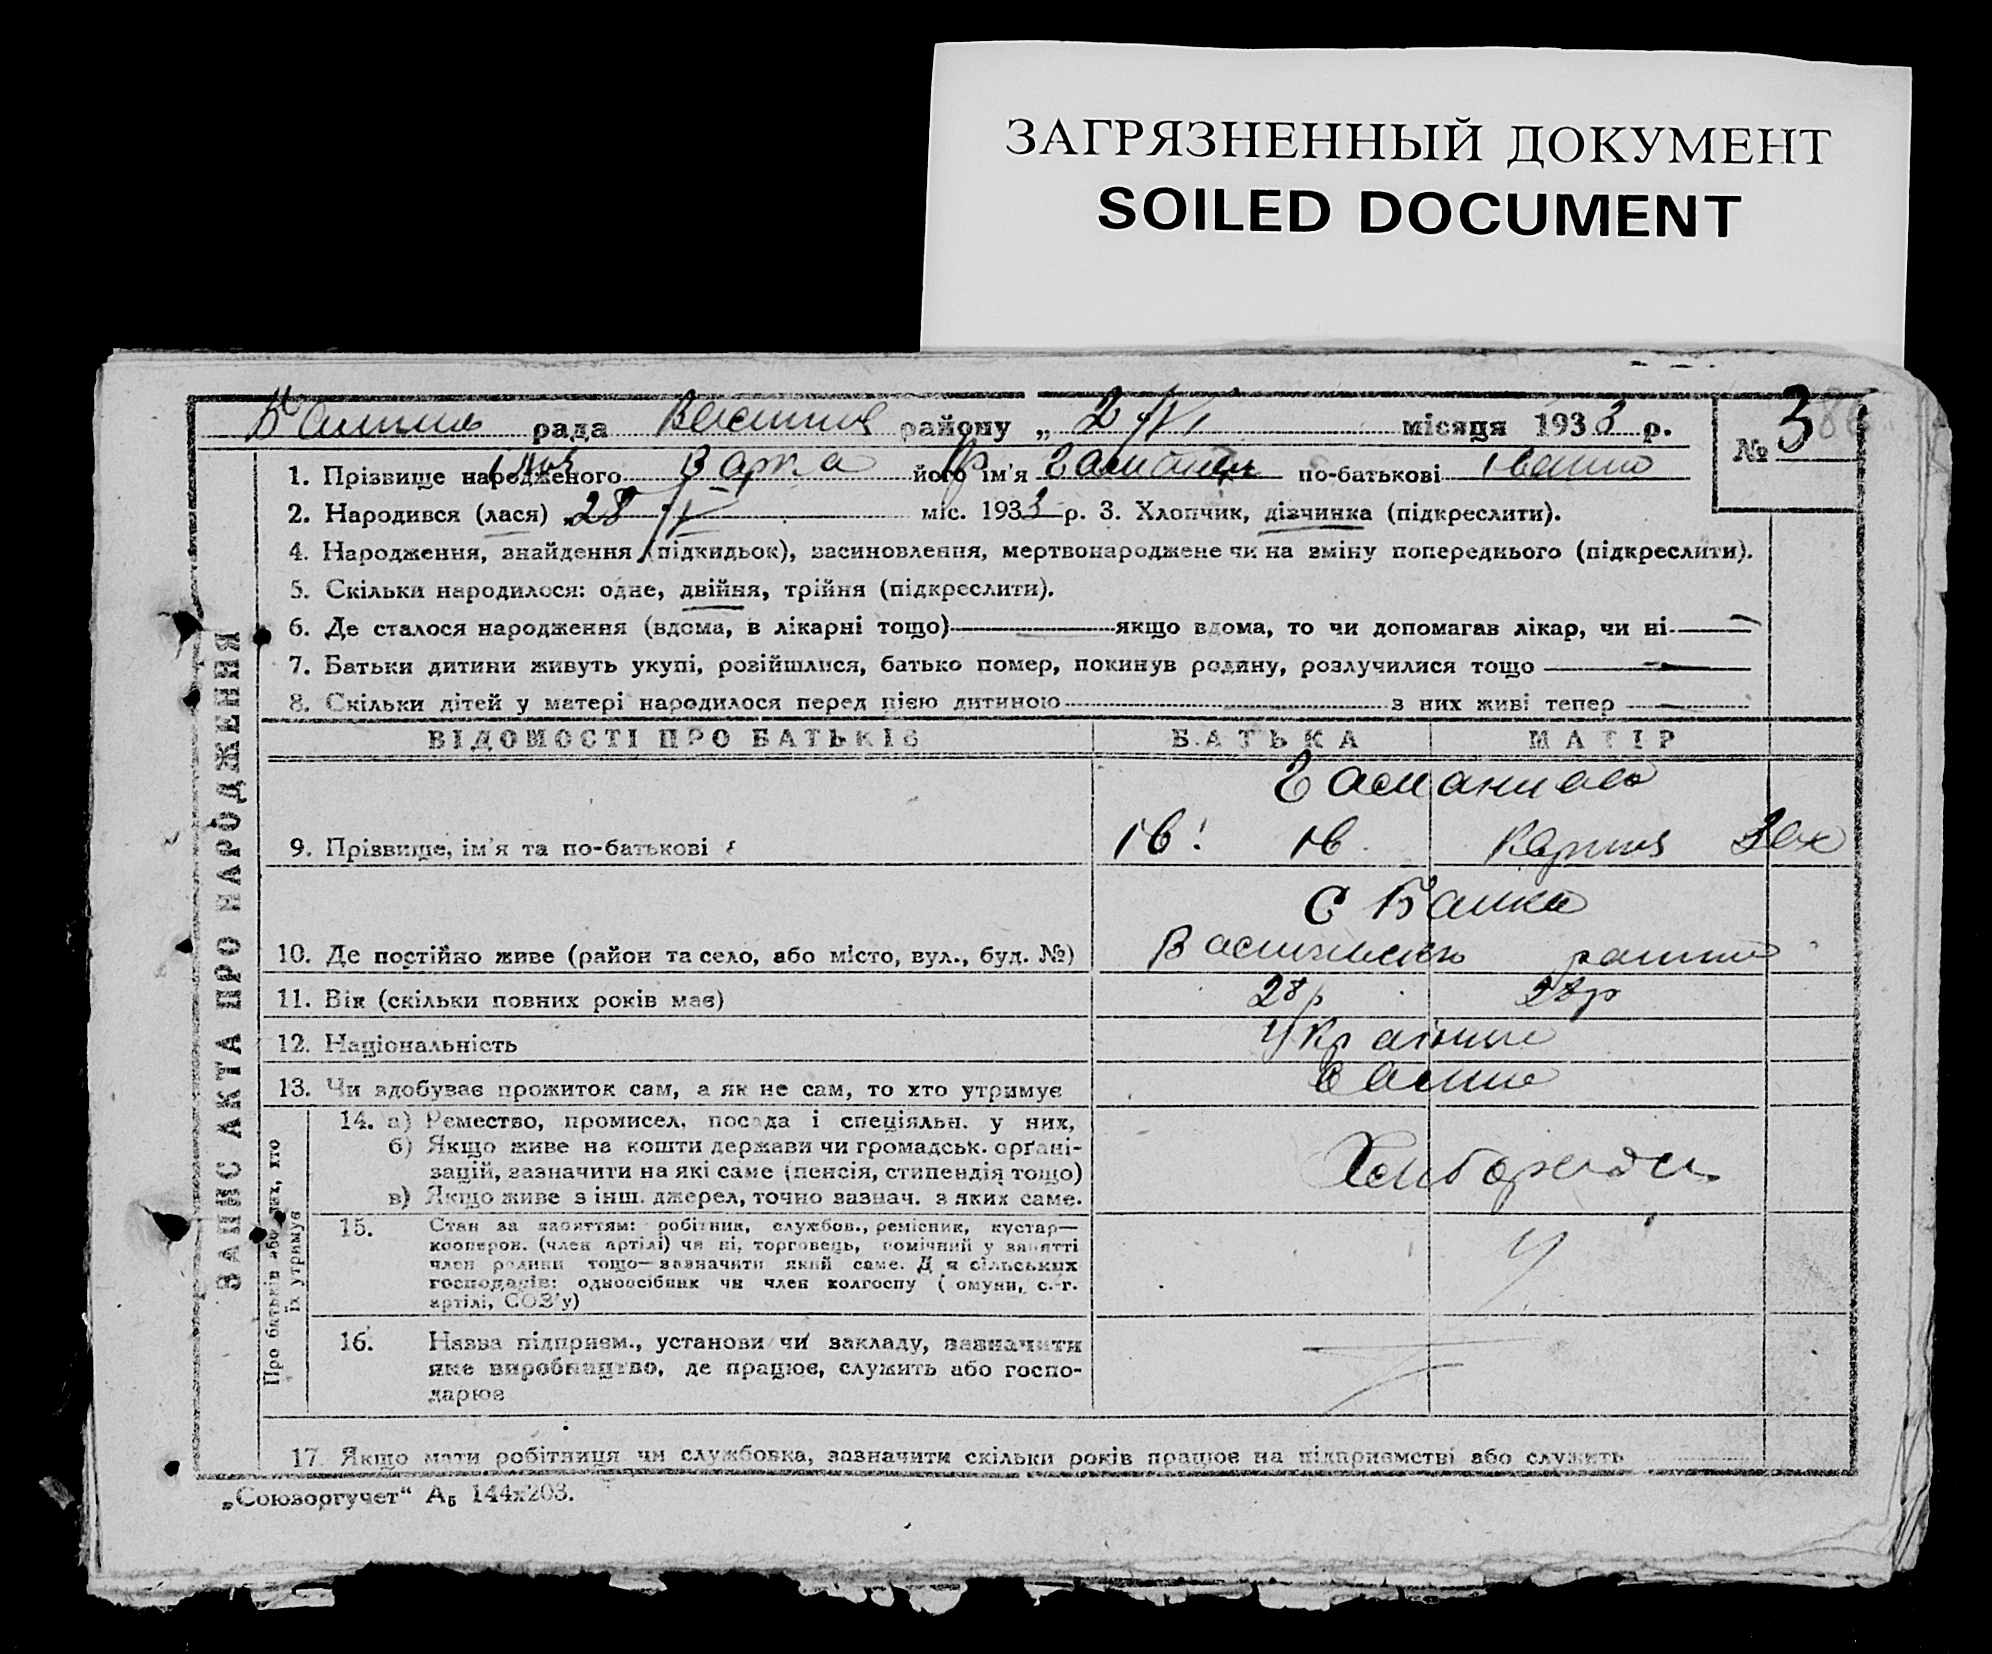 ЗАГРЯЗНЕННЫЙ ДОКУМЕНТ
SOILED DOCUMENT
рада району „ 2/VI місяця 1933 р.
№ 3
1. Прізвище народженого Варка його ім'я по-батькові
2. Народився (лася) 28/V міс. 1933 р. 3. Хлопчик, дівчинка (підкреслити).
4. Народження, знайдення (підкидьок), засиновлення, мертвонароджене чи на зміну попереднього (підкреслити).
5. Скільки народилося: одне, двійня, трійня (підкреслити).
6. Де сталося народження (вдома, в лікарні тощо) — якщо вдома, то чи допомагав лікар, чи ні —
7. Батьки дитини живуть укупі, розійшлися, батько помер, покинув родину, розлучилися тощо —
8. Скільки дітей у матері народилося перед цією дитиною — з них живі тепер —
ЗАПИС АКТА ПРО НАРОДЖЕННЯ
ВІДОМОСТІ ПРО БАТЬКІВ БАТЬКА МАТІР
9. Прізвище, ім'я та по-батькові Ів. Ів
С Балки
10. Де постійно живе (район та село, або місто, вул., буд. №)
11. Вік (скільки повних років має) 28р 28р
12. Національність
13. Чи здобуває прожиток сам, а як не сам, то хто утримує
Про батьків або тих, хто
їх утримує
14. а) Ремество, промисел, посада і спеціяльн. у них,
б) Якщо живе на кошти держави чи громадськ. орґані-
зацій, зазначити на які саме (пенсія, стипендія тощо)
в) Якщо живе з інш. джерел, точно зазнач. з яких саме.
Хлібороби
15. Стан за заняттям: робітник, службов., ремісник, кустар—
кооперов. (член артілі) чи ні, торговець, помічний у занятті
член родини тощо—зазначити який саме. Для сільських
господарів: одноосібник чи член колгоспу (комуни, с.-г.
артілі, СОЗ'у)
16. Назва підприєм., установи чи закладу, зазначити
яке виробництво, де працює, служить або госпо-
дарює
17. Якщо мати робітниця чи службовка, зазначити скільки років працює на підприємстві або служить
„Союзоргучет“ А₅ 144х203.